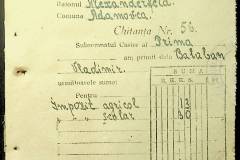 Raionul Alexanderfeld
Comuna Adamovca
Chitanța Nr. 56.
Subsemnatul Casier al Prima
am primit dela Balaban
Vladimir.
următoarele sume:
SUMA
Pentru
Impozit agricol 13
" " scolar 30